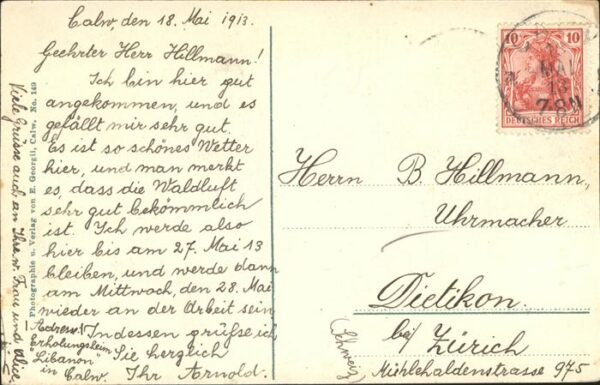 Calw, den 18. Mai 1913.
Geehrter Herr Hillmann!
Ich bin hier gut
angekommen, und es
gefällt mir sehr gut.
Es ist so schönes Wetter
hier, und man merkt
es, dass die Waldluft
sehr gut bekömmlich
ist. Ich werde also
hier bis am 27. Mai 13
bleiben, und werde dann
am Mittwoch, den 28. Mai
wieder an der Arbeit sein
Indessen grüße ich
Sie herzlich
Ihr Arnold.
Adresse:
Erholungsheim
Libanon
in Calw.
Viele Grüsse auch an Ihre w. Frau und Alice
Photographie u. Verlag von E. Georgii, Calw. No. 149
10 10
DEUTSCHES REICH
MAI
13
Herrn B. Hillmann,
Uhrmacher
Dietikon.
bei Zürich
(Schweiz)
Mühlehaldenstrasse 975